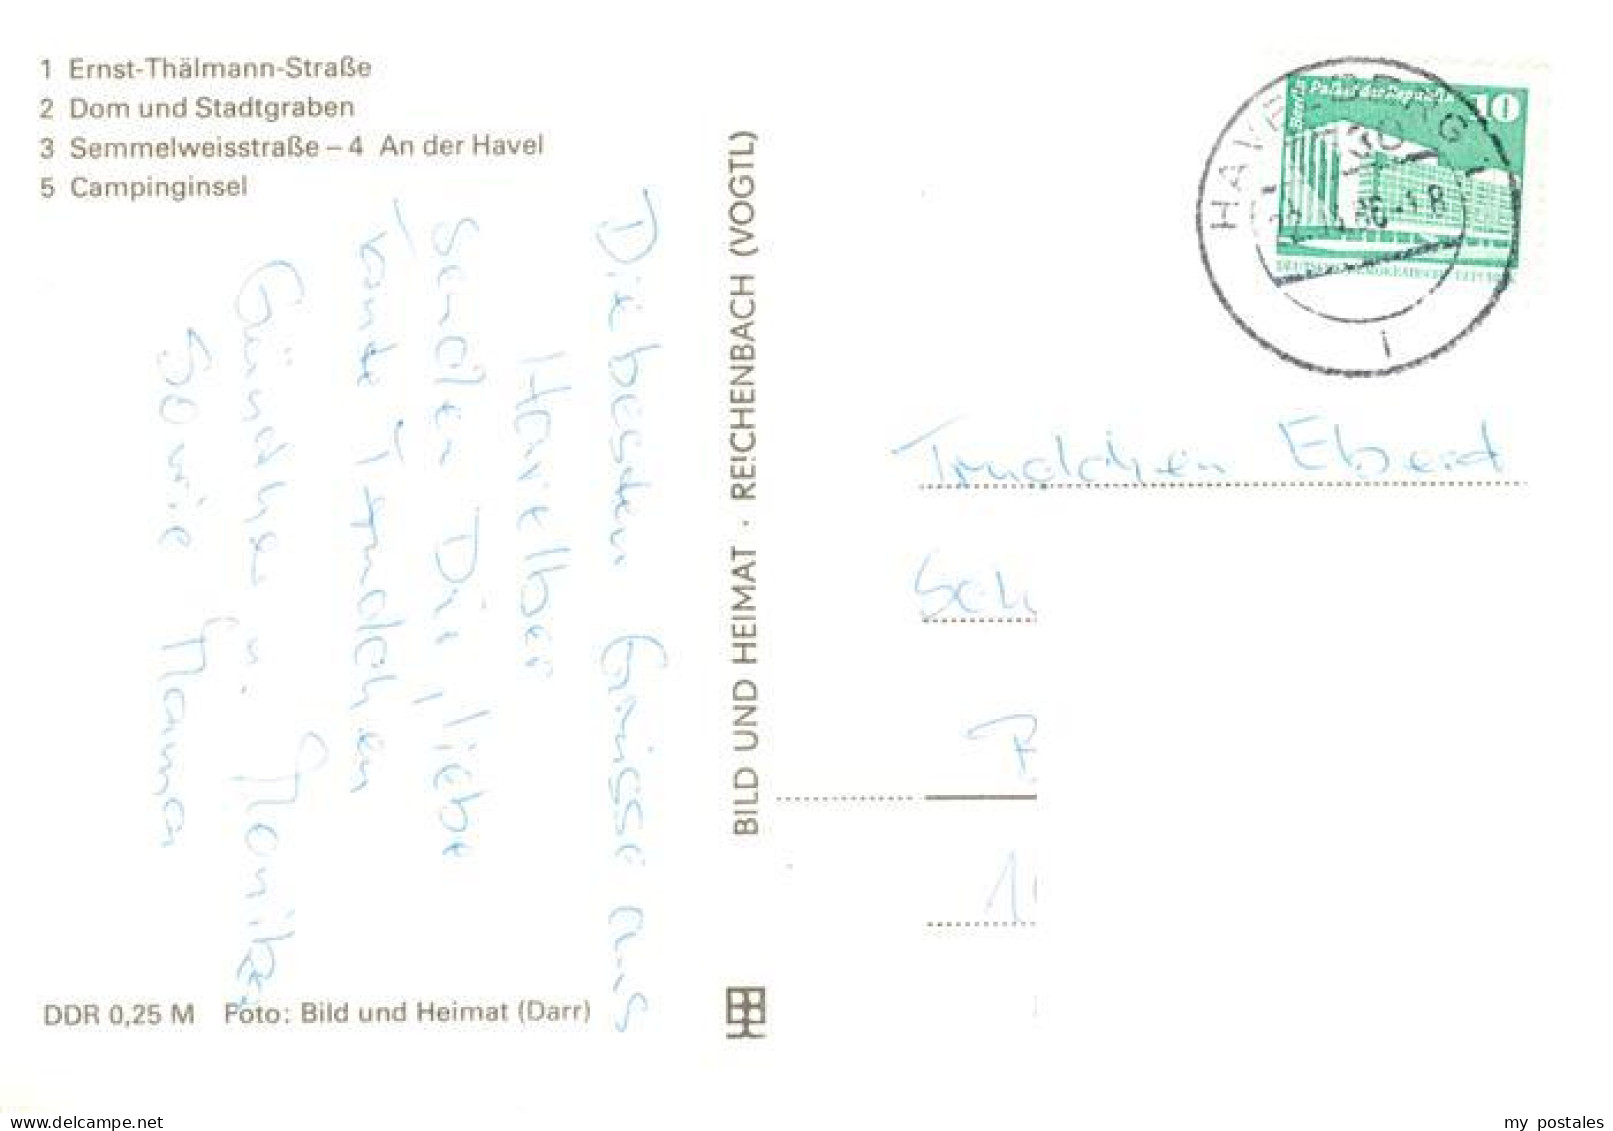 1 Ernst-Thälmann-Straße
2 Dom und Stadtgraben
3 Semmelweisstraße – 4 An der Havel
5 Campinginsel
Die besten Grüsse aus
Havelberg
senden Dir, liebe
Tante Trudchen
Günther u. Monika
sowie Mama
DDR 0,25 M Foto: Bild und Heimat (Darr)
BILD UND HEIMAT · REICHENBACH (VOGTL)
Berlin Palast der Republik 10
DEUTSCHE DEMOKRATISCHE REPUBLIK
HAVELBERG 1
Trudchen Ebert
Sch
my postales
www.delcampe.net